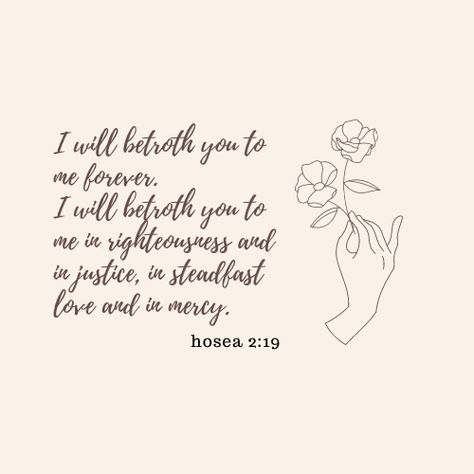 I will betroth you to
me forever.
I will betroth you to
me in righteousness and
in justice, in steadfast
love and in mercy.
hosea 2:19